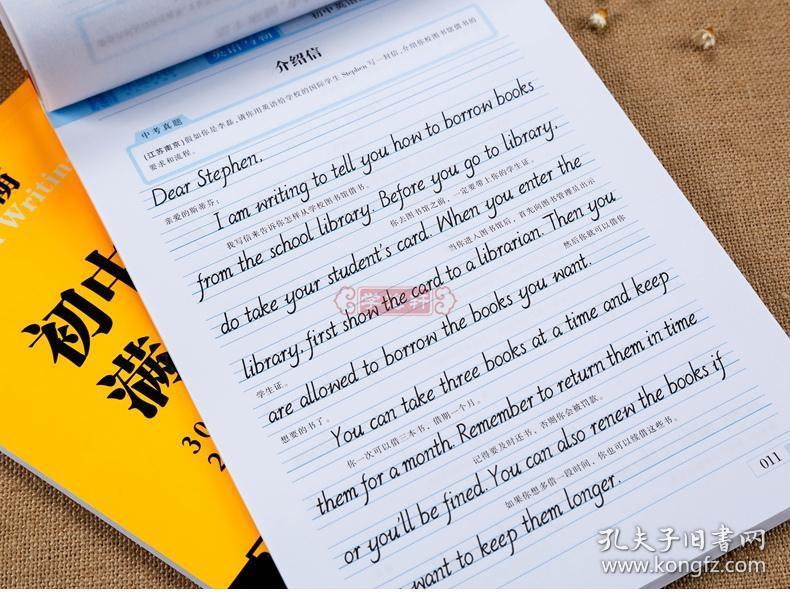 介绍信
中考真题
(江苏南京)假如你是李磊,请你用英语给学校的国际学生Stephen写一封信,介绍你校图书馆借书的
要求和流程。
Dear Stephen,
亲爱的斯蒂芬:
I am writing to tell you how to borrow books
我写信来告诉你怎样从学校图书馆借书。
from the school library. Before you go to library,
你去图书馆之前,一定要带上你的学生证。
do take your student's card. When you enter the
当你进入图书馆后,首先向图书管理员出示
library, first show the card to a librarian. Then you
学生证。
然后你就可以借你
are allowed to borrow the books you want.
想要的书了。
You can take three books at a time and keep
你一次可以借三本书,借期一个月。
them for a month. Remember to return them in time
记得要及时还书,否则你会被罚款。
or you'll be fined. You can also renew the books if
如果你想多借一段时间,你也可以续借这些书。
want to keep them longer.
011
初中
满
Writing
孔夫子旧书网
www.kongfz.com